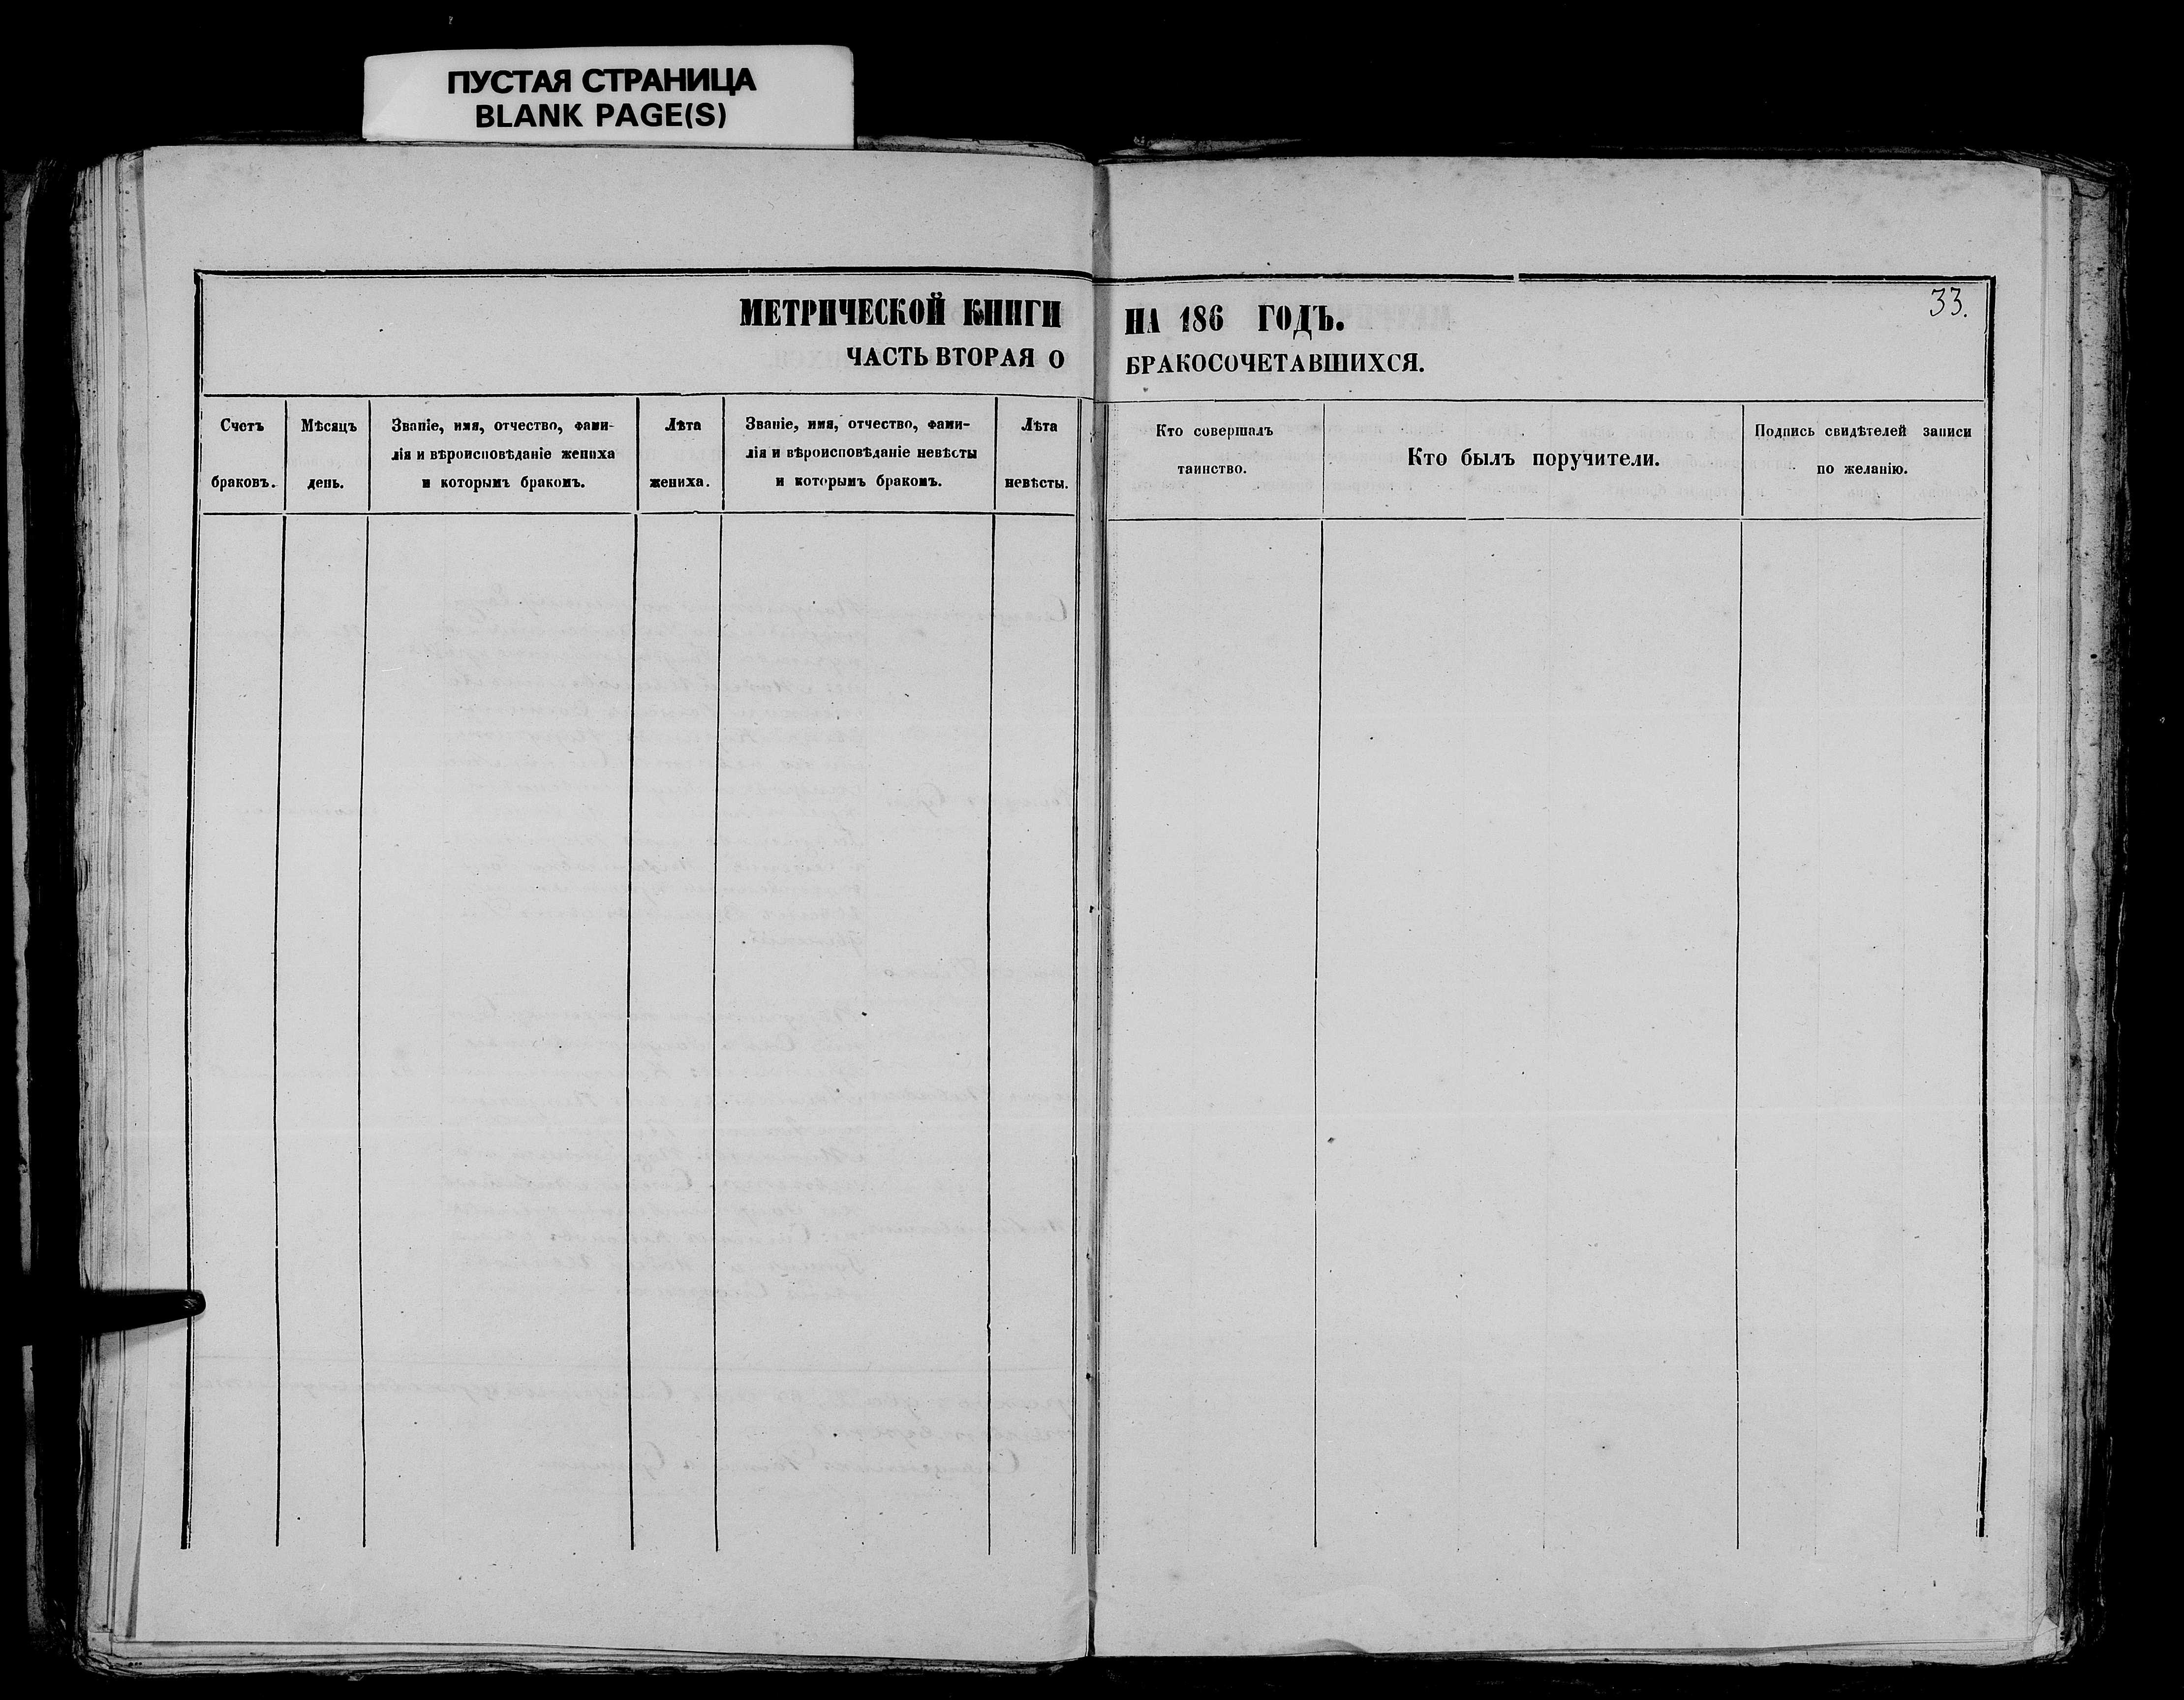 ПУСТАЯ СТРАНИЦА
BLANK PAGE(S)
МЕТРИЧЕСКОЙ КНИГИ НА 186 ГОДЪ.
33.
ЧАСТЬ ВТОРАЯ О БРАКОСОЧЕТАВШИХСЯ.
Счетъ
браковъ.
Мѣсяцъ
день.
Званіе, имя, отчество, фами-
лія и вѣроисповѣданіе жениха
и которымъ бракомъ.
Лѣта
жениха.
Званіе, имя, отчество, фами-
лія и вѣроисповѣданіе невѣсты
и которымъ бракомъ.
Лѣта
невѣсты.
Кто совершалъ
таинство.
Кто былъ поручители.
Подпись свидѣтелей записи
по желанію.